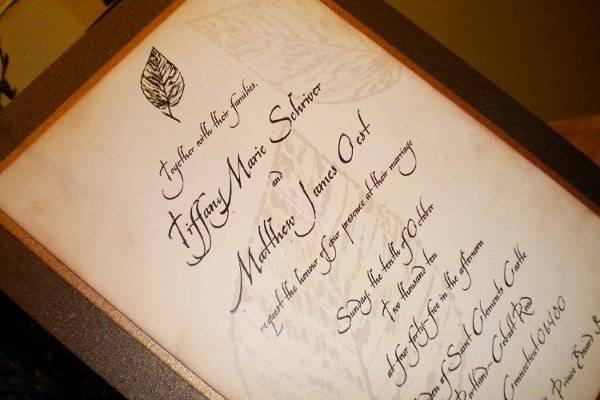 Together with their families,
Tiffany Marie Schriver
and
Matthew James Oest
request the honour of your presence at their marriage
Sunday, the tenth of October
Two thousand ten
at four forty-five in the afternoon
of Saint Clements Castle
Portland-Cobalt Rd
Connecticut 06480
Prince Edward